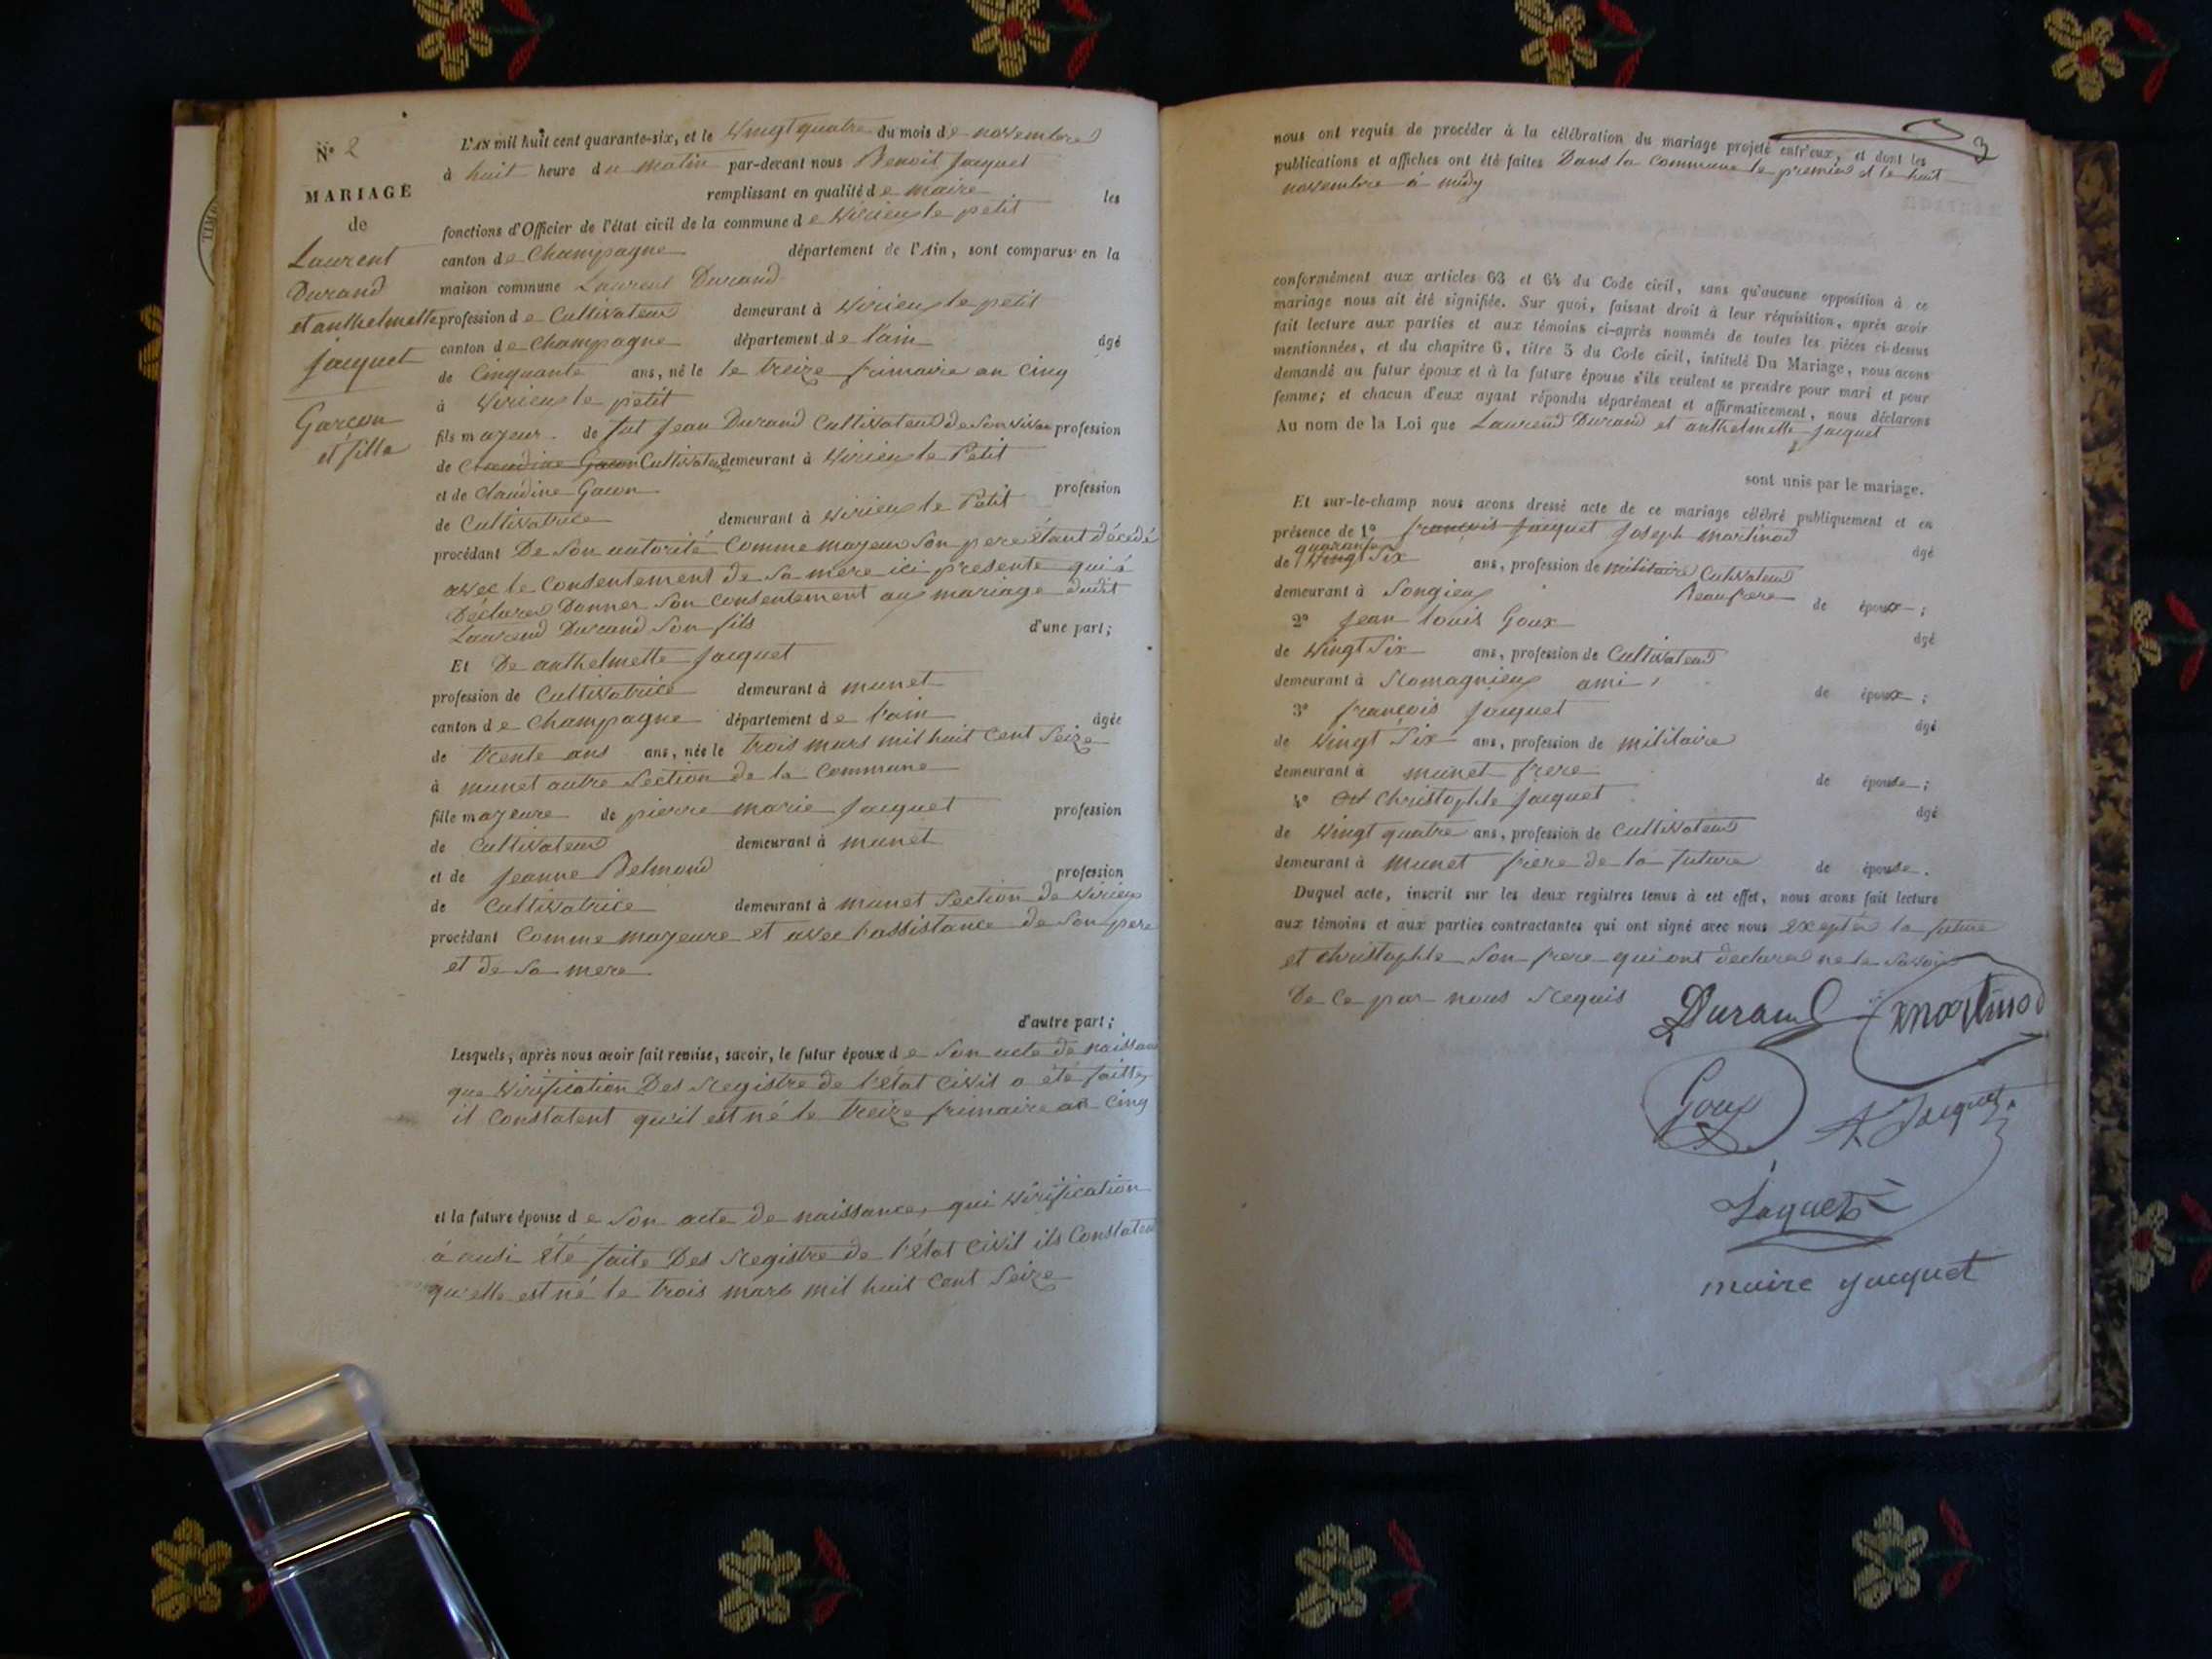 N° 2
MARIAGE
de
Laurent
Durand
et anthelmette
jacquet
Garçon
et fille
L'AN mil huit cent quarante-six, et le Vingt quatre du mois de novembre
à huit heure du matin par-devant nous Benoit Jacquet
remplissant en qualité de maire les
fonctions d'Officier de l'état civil de la commune de Virieu le petit
canton de Champagne département de l'Ain, sont comparus en la
maison commune Laurent Durand
profession de Cultivateur demeurant à Virieu le petit
canton de Champagne département de l'ain âgé
de Cinquante ans, né le le treize frimaire an Cinq
à Virieu le petit
fils majeur de fut Jean Durand Cultivateur de son vivan profession
de Claudine Gacon Cultivateur demeurant à Virieu le Petit
et de Claudine Gacon profession
de Cultivatrice demeurant à Virieu le Petit
procédant De son autorité Comme majeur son pere étant décédé
avec le Consentement de sa mere ici presente qui à
Déclarer Donner son Consentement au mariage dudit
Laurend Durand son fils d'une part;
Et De anthelmette Jacquet
profession de Cultivatrice demeurant à munet
canton de Champagne département de l'ain âgée
de trente ans ans, née le trois mars mil huit Cent Seize
à munet autre Section de la Commune
fille majeure de pierre marie Jacquet profession
de Cultivateur demeurant à munet
et de Jeanne Belmond profession
de Cultivatrice demeurant à munet Section de Virieu
procédant Comme majeure et avec l'assistance de son pere
et de sa mere
d'autre part;
Lesquels, après nous avoir fait remise, savoir, le futur époux de son acte de naissance
que Virification Des Registre de l'état Civil a été faitte,
il Constatent qu'il est né le treize frimaire an Cinq
et la future épouse de son acte de naissance, qui Virification
à ausi été faite Des Registre de l'état Civil ils Constatent
qu'elle est né le trois mars mil huit Cent Seize
3
nous ont requis de procéder à la célébration du mariage projeté entr'eux, et dont les
publications et affiches ont été faites Dans la Commune le premier et le huit
novembre à midy
conformément aux articles 63 et 64 du Code civil, sans qu'aucune opposition à ce
mariage nous ait été signifiée. Sur quoi, faisant droit à leur réquisition, après avoir
fait lecture aux parties et aux témoins ci-après nommés de toutes les pièces ci-dessus
mentionnées, et du chapitre 6, titre 5 du Code civil, intitulé Du Mariage, nous avons
demandé au futur époux et à la future épouse s'ils veulent se prendre pour mari et pour
femme; et chacun d'eux ayant répondu séparément et affirmativement, nous déclarons
Au nom de la Loi que Laurend Durand et anthelmette Jacquet
sont unis par le mariage.
Et sur-le-champ nous avons dressé acte de ce mariage célébré publiquement et en
présence de 1° françois Jacquet Joseph martinod
quarante
de Vingt Six ans, profession de militaire Cultivateur âgé
demeurant à Songieu Beaufrere de époux;
2° Jean louis Goux
de Vingt Six ans, profession de Cultivateur âgé
demeurant à Romagnieu ami, de époux;
3° françois Jacquet
de Vingt Six ans, profession de militaire âgé
demeurant à munet frere de épouse;
4° et Christophle Jacquet
de Vingt quatre ans, profession de Cultivateur âgé
demeurant à munet frere de la future de épouse.
Duquel acte, inscrit sur les deux registres tenus à cet effet, nous avons fait lecture
aux témoins et aux parties contractantes qui ont signé avec nous exepter la future
et christophle son frere qui ont declarer ne le savoir
De Ce par nous Requis
Durand martinod
Goux Jacquet
Jaquet
maire jacquet